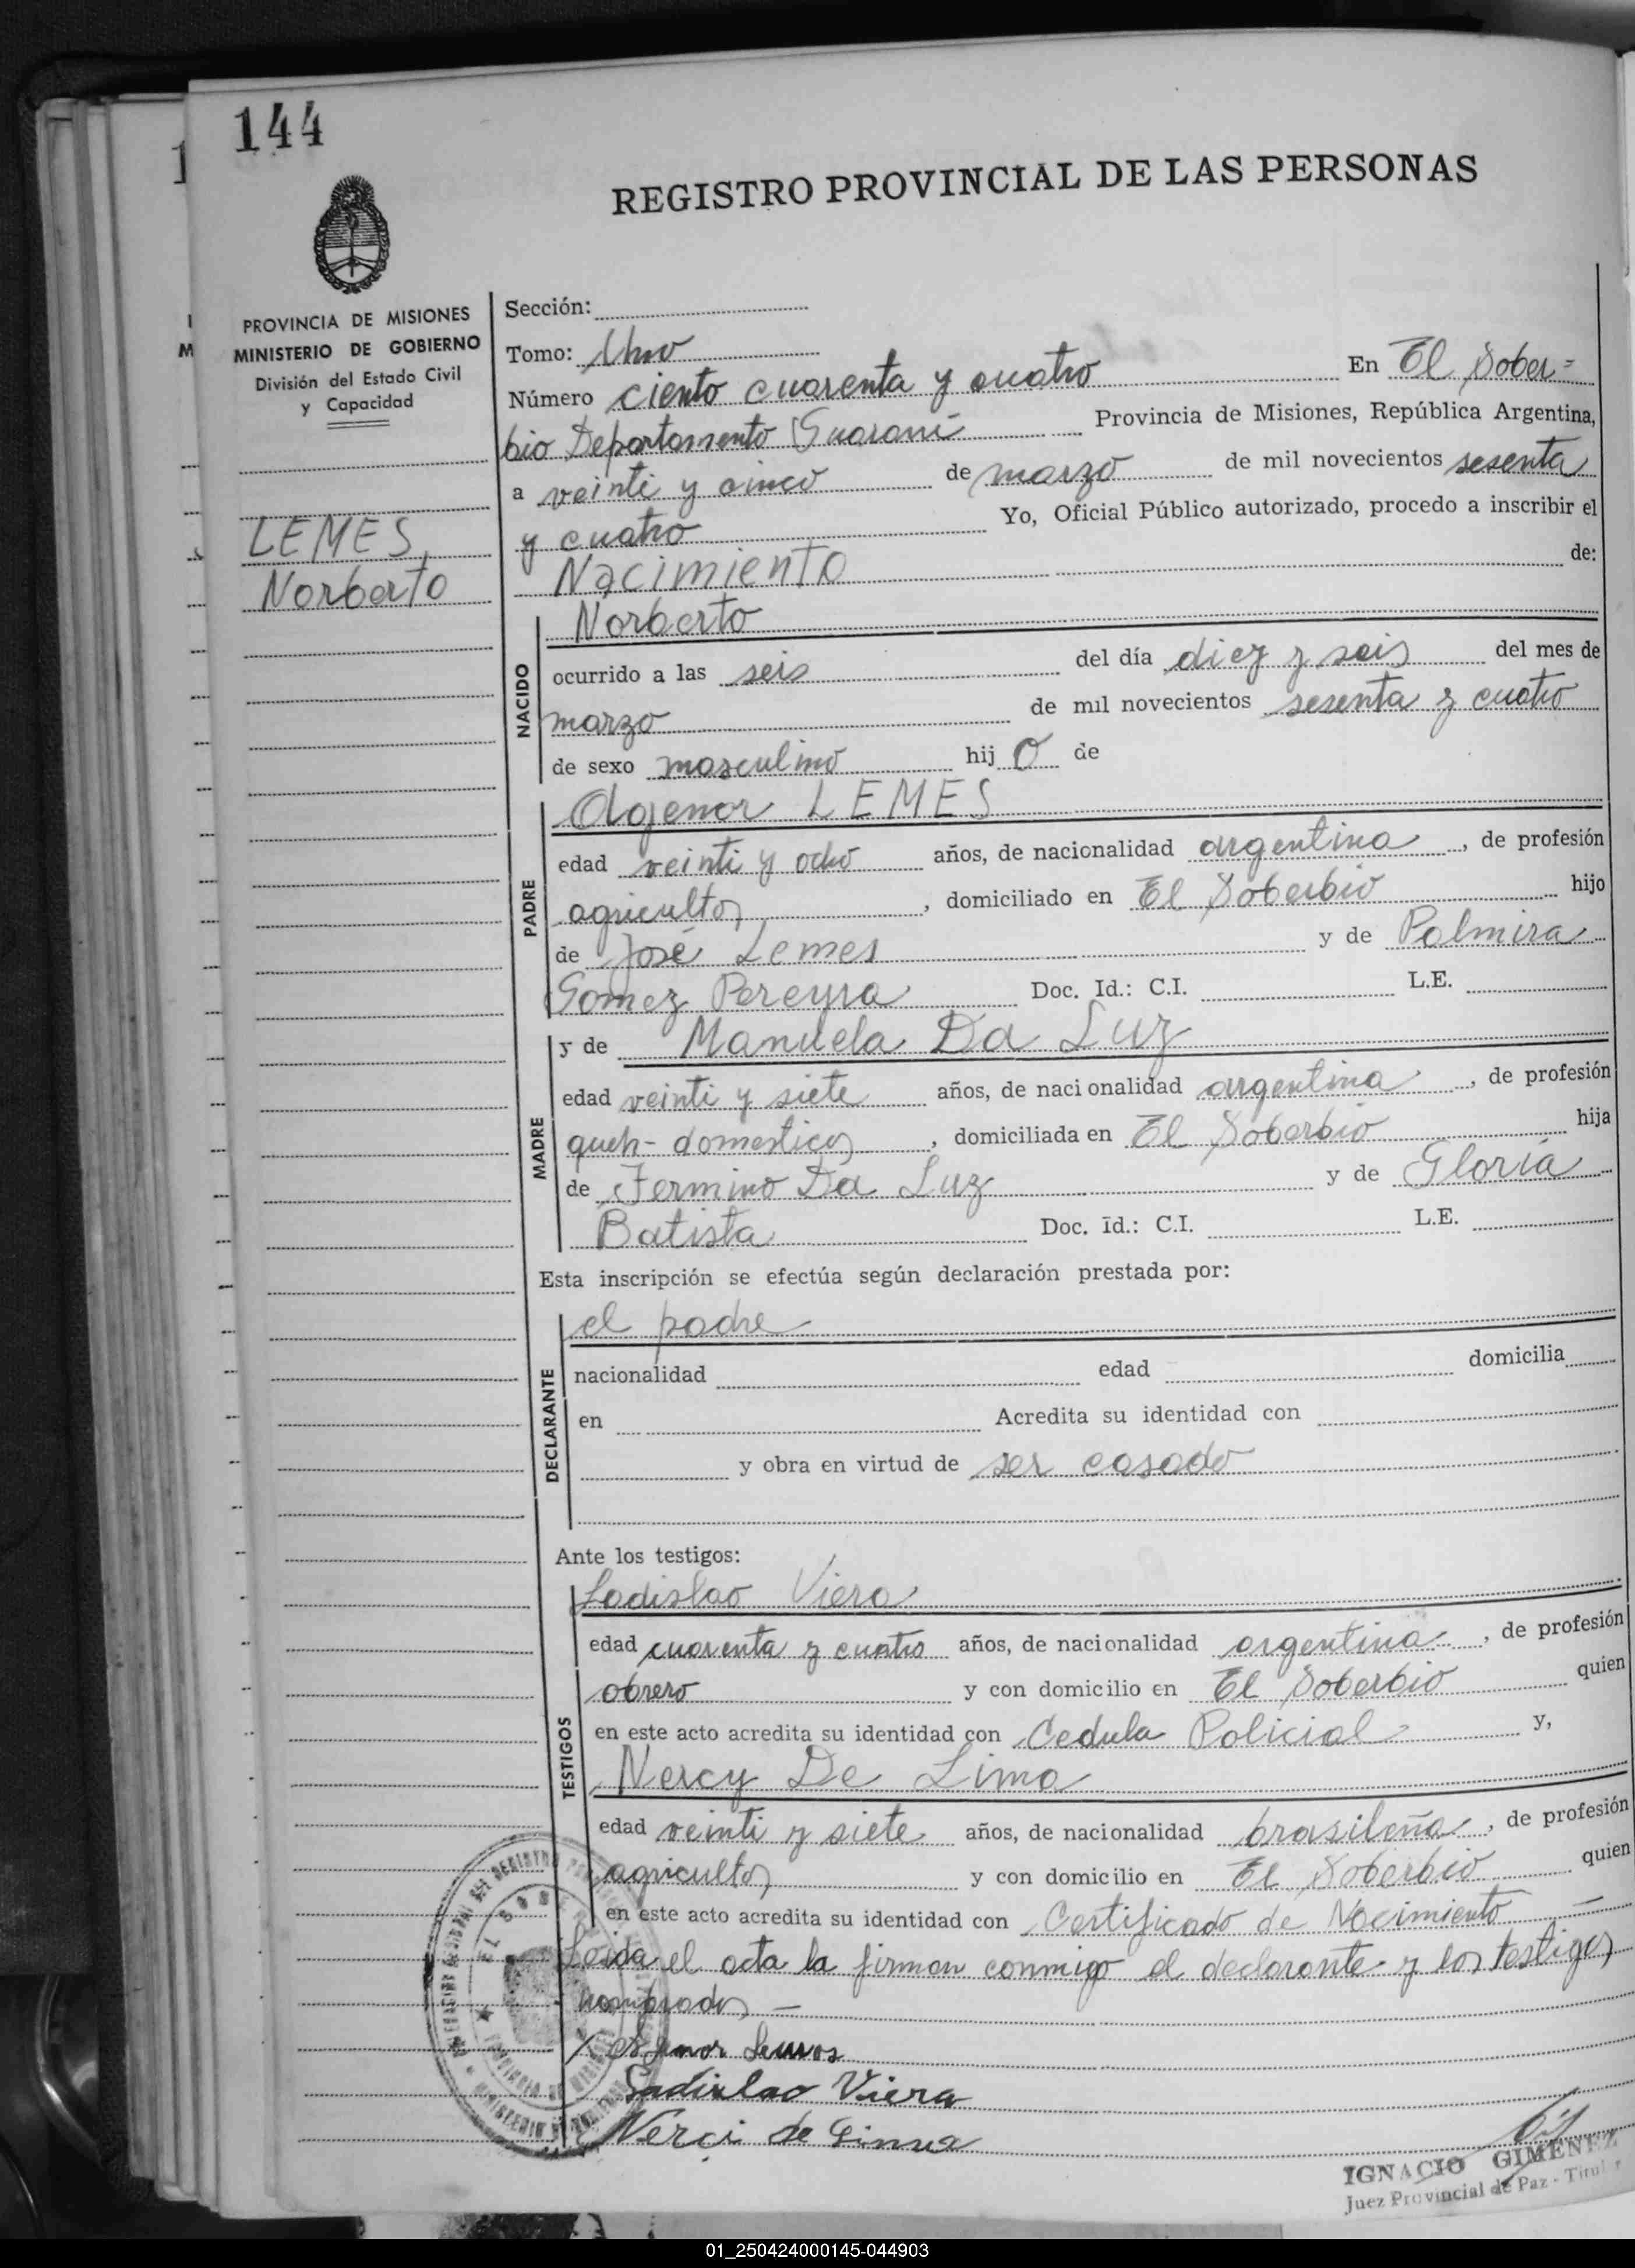 144
REGISTRO PROVINCIAL DE LAS PERSONAS
PROVINCIA DE MISIONES
MINISTERIO DE GOBIERNO
División del Estado Civil
y Capacidad
LEMES,
Norberto
Sección:
Tomo: Uno
Número ciento cuarenta y cuatro En El Sober=
bio Departamento Guarani Provincia de Misiones, República Argentina,
a veinti y cinco de marzo de mil novecientos sesenta
y cuatro Yo, Oficial Público autorizado, procedo a inscribir el
Nacimiento de:
NACIDO
Norberto
ocurrido a las seis del día diez y seis del mes de
marzo de mil novecientos sesenta y cuatro
de sexo masculino hij o de
PADRE
Agenor LEMES
edad veinti y ocho años, de nacionalidad argentina, de profesión
agricultor, domiciliado en El Soberbio hijo
de José Lemes y de Palmira
Gomez Pereyra Doc. Id.: C.I. L.E.
MADRE
y de Manuela Da Luz
edad veinti y siete años, de nacionalidad argentina, de profesión
queh- domesticos, domiciliada en El Soberbio hija
de Fermino Da Luz y de Gloria
Batista Doc. Id.: C.I. L.E.
Esta inscripción se efectúa según declaración prestada por:
DECLARANTE
el padre
nacionalidad edad domicilia
en Acredita su identidad con
y obra en virtud de ser casado
Ante los testigos:
TESTIGOS
Ladislao Viera
edad cuarenta y cuatro años, de nacionalidad argentina, de profesión
obrero y con domicilio en El Soberbio quien
en este acto acredita su identidad con Cedula Policial y,
Nercy De Lima
edad veinti y siete años, de nacionalidad brasileña, de profesión
agricultor y con domicilio en El Soberbio quien
en este acto acredita su identidad con Certificado de Nacimiento —
Leida el acta la firman conmigo el declarante y los testigos
nombrados —
Ladislao Viera
Nerci de Lima
IGNACIO GIMENEZ
Juez Provincial de Paz - Titular
01_250424000145-044903